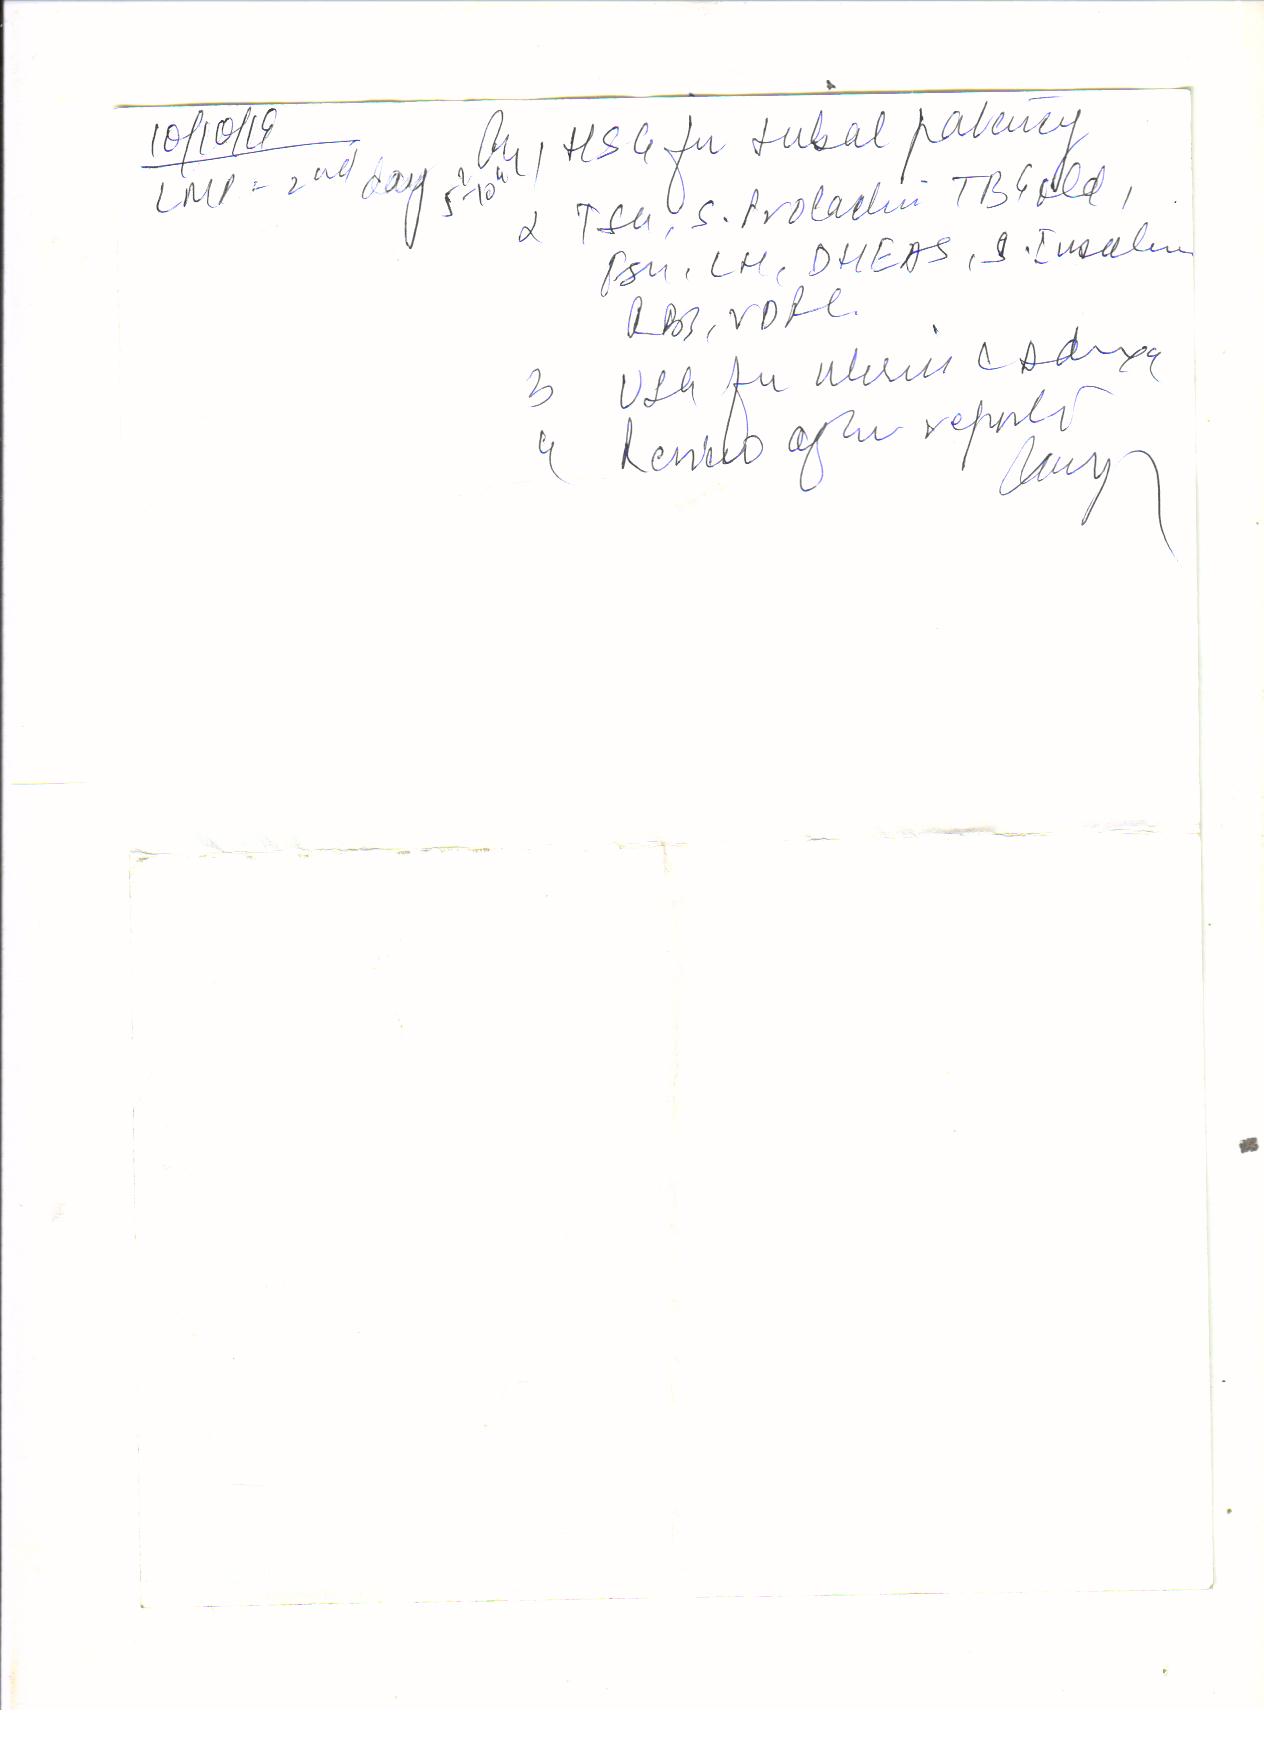 10/10/19
LMP = 2nd day
Adv 1 HSG for tubal patency
2 TSH, S. Prolactin TB Gold,
FSH, LH, DHEAS, S. Insulin
RBS, VDRL.
3 USG for uterus & adnexa
4 Review after reports